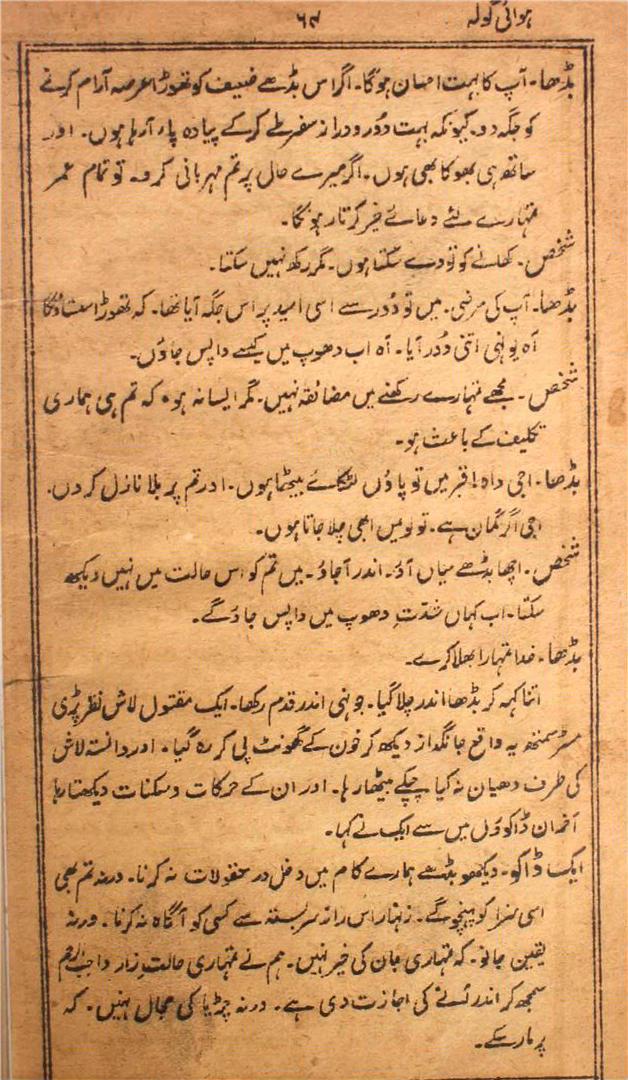 ہوائی گولہ ۶۹
بڈھا۔ آپ کا بہت احسان ہوگا۔ اگر اس بڈھے ضعیف کو تھوڑا عرصہ آرام کرنے
کو جگہ دو۔ کیونکہ بہت دور دراز سفر طے کرکے پیادہ پاء آرہا ہوں۔ اور
ساتھ ہی بھوکا بھی ہوں۔ اگر میرے حال پر تم مہربانی کرو۔ تو تمام عمر
تمہارے لئے دعائے خیر کرتا رہونگا۔
شخص۔ کھانے کو تو دے سکتا ہوں۔ مگر رکھ نہیں سکتا۔
بڈھا۔ آپ کی مرضی۔ میں تو دور سے اسی امید پر اس جگہ آیا تھا۔ کہ تھوڑا سستاؤنگا
آہ یونہی اتنی دور آیا۔ آہ اب دھوپ میں کیسے واپس جاؤں۔
شخص۔ مجھے تمہارے رکھنے میں مضائقہ نہیں۔ مگر ایسا نہ ہو۔ کہ تم ہی ہماری
تکلیف کے باعث ہو۔
بڈھا۔ اجی واہ! قبر میں تو پاؤں لٹکائے بیٹھا ہوں۔ اور تم پر بلا نازل کر دوں۔
اجی اگر گمان ہے۔ تو لو میں ابھی چلا جاتا ہوں۔
شخص۔ اچھا بڈھے میاں آؤ۔ اندر آجاؤ۔ میں تم کو اس حالت میں نہیں دیکھ
سکتا۔ اب کہاں شدّتِ دھوپ میں واپس جاؤگے۔
بڈھا۔ خدا تمہارا بھلا کرے۔
اتنا کہہ کر بڈھا اندر چلا گیا۔ جونہی اندر قدم رکھا۔ ایک مقتول لاش نظر پڑی
مسٹر سمتھ یہ واقع جانگداز دیکھ کر خون کے گھونٹ پی کر رہ گیا۔ اور دانستہ لاش
کی طرف دھیان نہ کیا چپکے بیٹھا رہا۔ اور ان کے حرکات و سکنات دیکھتا رہا
آخر ان ڈاکوؤں میں سے ایک نے کہا۔
ایک ڈاکو۔ دیکھو بڈھے ہمارے کام میں دخل در معقولات نہ کرنا۔ ورنہ تم بھی
اسی سزا کو پہنچوگے۔ زنہار اس راز سربستہ سے کسی کو آگاہ نہ کرنا۔ ورنہ
یقین جانو۔ کہ تمہاری جان کی خیر نہیں۔ ہم نے تمہاری حالتِ زار واجب الرحم
سمجھ کر اندر آنے کی اجازت دی ہے۔ ورنہ چڑیا کی مجال نہیں۔ کہ
پر مار سکے۔